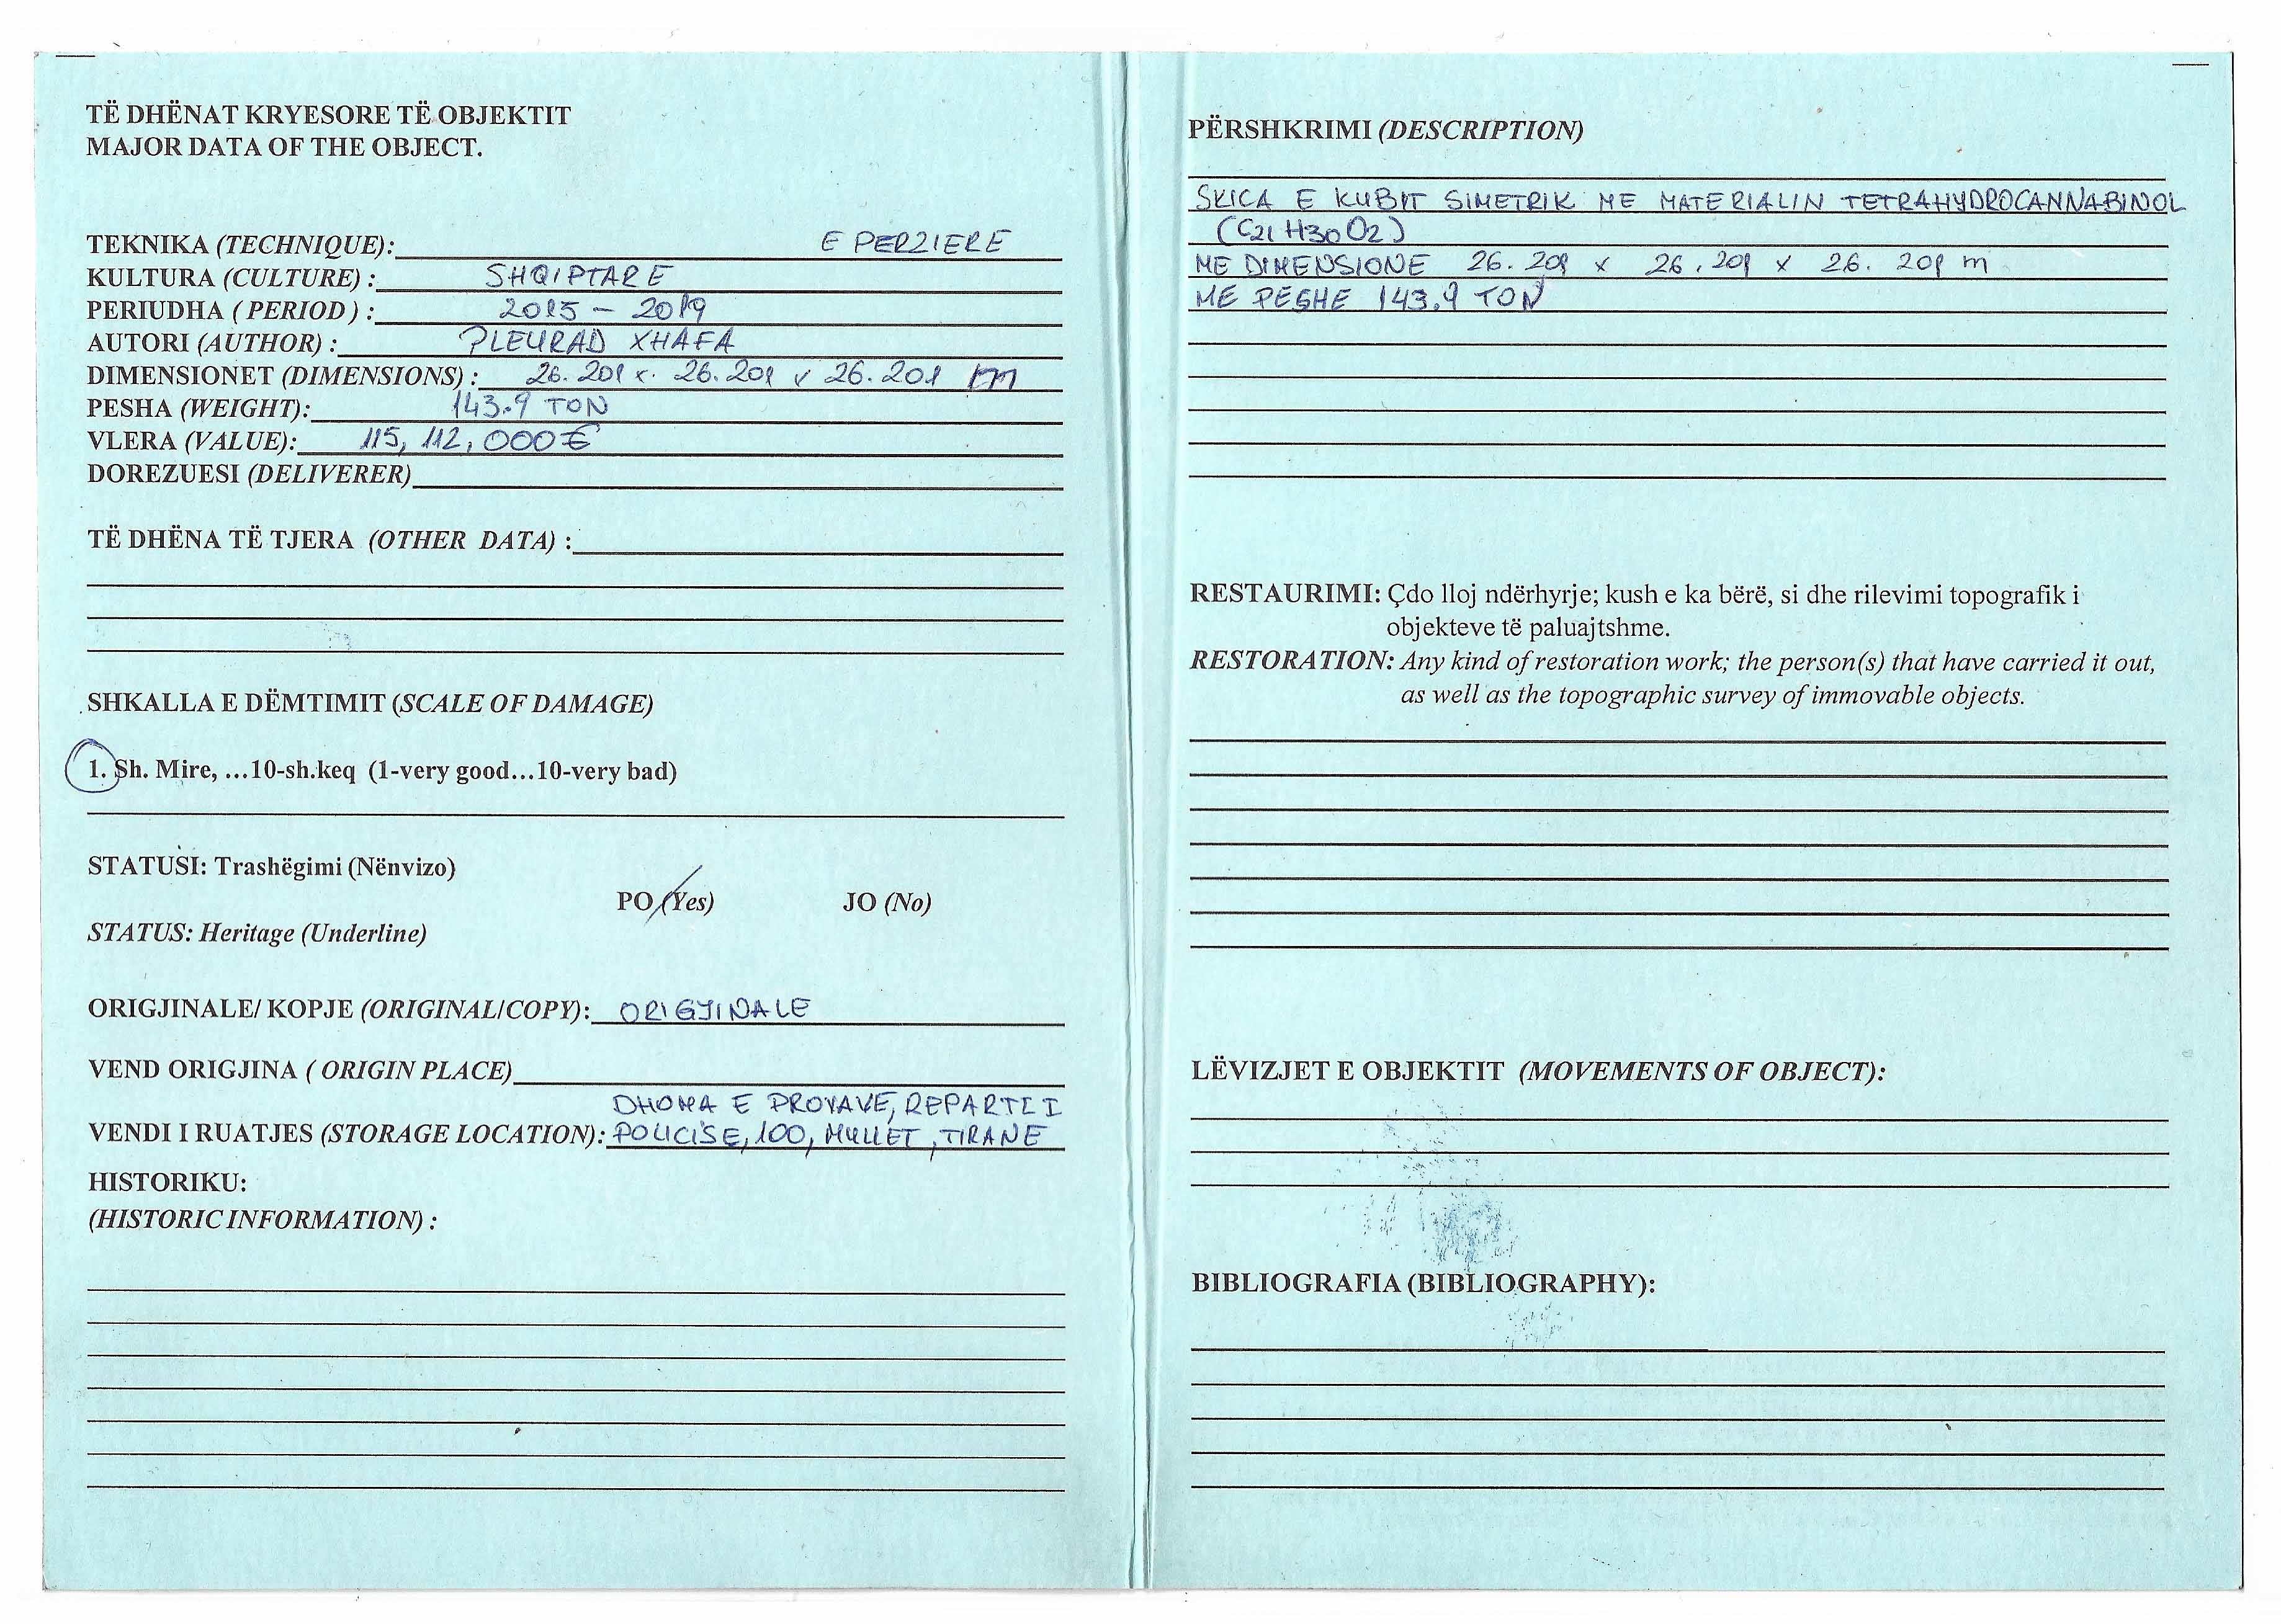 TË DHËNAT KRYESORE TË OBJEKTIT
MAJOR DATA OF THE OBJECT.
TEKNIKA (TECHNIQUE): E PERZIERE
KULTURA (CULTURE) : SHQIPTARE
PERIUDHA ( PERIOD ) : 2015 – 2019
AUTORI (AUTHOR) : PLEURAD XHAFA
DIMENSIONET (DIMENSIONS) : 26.201 x 26.201 x 26.201 m
PESHA (WEIGHT): 143.9 TON
VLERA (VALUE): 115,112,000 €
DOREZUESI (DELIVERER)
TË DHËNA TË TJERA (OTHER DATA) :
SHKALLA E DËMTIMIT (SCALE OF DAMAGE)
1. Sh. Mire, ...10-sh.keq (1-very good...10-very bad)
STATUSI: Trashëgimi (Nënvizo)
PO (Yes) JO (No)
STATUS: Heritage (Underline)
ORIGJINALE/ KOPJE (ORIGINAL/COPY): ORIGJINALE
VEND ORIGJINA ( ORIGIN PLACE)
DHOMA E PROVAVE, REPARTI I
VENDI I RUATJES (STORAGE LOCATION): POLICISE, 100, MULLET, TIRANE
HISTORIKU:
(HISTORIC INFORMATION) :
PËRSHKRIMI (DESCRIPTION)
SKICA E KUBIT SIMETRIK ME MATERIALIN TETRAHYDROCANNABINOL
(C21 H30 O2)
ME DIMENSIONE 26.201 x 26.201 x 26.201 m
ME PESHE 143.9 TON
RESTAURIMI: Çdo lloj ndërhyrje; kush e ka bërë, si dhe rilevimi topografik i
objekteve të paluajtshme.
RESTORATION: Any kind of restoration work; the person(s) that have carried it out,
as well as the topographic survey of immovable objects.
LËVIZJET E OBJEKTIT (MOVEMENTS OF OBJECT):
BIBLIOGRAFIA (BIBLIOGRAPHY):